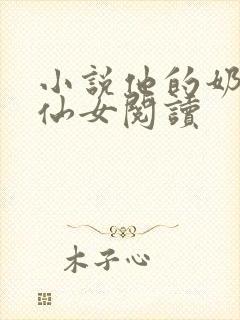 小說他的奶
仙女閱讀
木子心